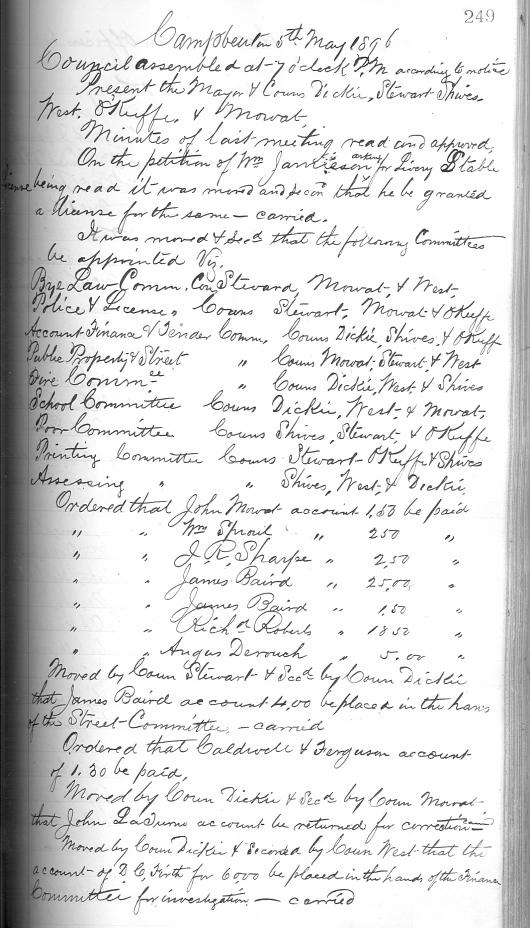 249
Campbellton 5th May 1896
Council assembled at 7 o'clock P.M according to notice
Present the Mayor & Couns Dickie, Stewart Shives
West, OKeiffe, & Mowat.
Minutes of last meeting read and approved,
On the petition of Wm Jamieson asking for Livery Stable
license being read it was moved and secon that he be granted
a license for the same – carried.
It was moved & Secd that the following Committees
be appointed Viz,
Bye Law Comm, Con Steward, Mowat, & West,
Police & License „ Couns Stewart, Mowat & OKeiffe
Account Finance & Tender Comm, Couns Dickie, Shives, & OKeiff
Public Property & Street „ Couns Mowat, Stewart & West
Fire Commee „ Couns Dickie, West, & Shives
School Committee Couns Dickie, West, & Mowat,
Poor Committee Couns Shives, Stewart, & OKeiffe
Printing Committee Couns Stewart OKeiffe & Shives
Assessing „ „ Shives, West, & Dickie,
Ordered that John Mowat account 1,50 be paid
„ „ Wm Sproul „ 250 „
„ „ J, R, Sharpe „ 2,50 „
„ „ James Baird „ 25,00, „
„ „ James Baird „ 1,50 „
„ „ Richd Roberts „ 1850 „
„ „ Angus Derouch „ 5.00 „
Moved by Coun Stewart & Secd by Coun Dickie
that James Baird account 4,00 be placed in the hans
of the Street Committee, – carried
Ordered that Caldwell & Ferguson account
of 1.30 be paid,
Moved by Coun Dickie & Secd by Coun Mowat
that John account be returned for correction – carried
Moved by Coun Dickie & Seconed by Coun West that the
account of D, C, Firth for 6000 be placed in the hands of the Finance
Committee for investigation – carried